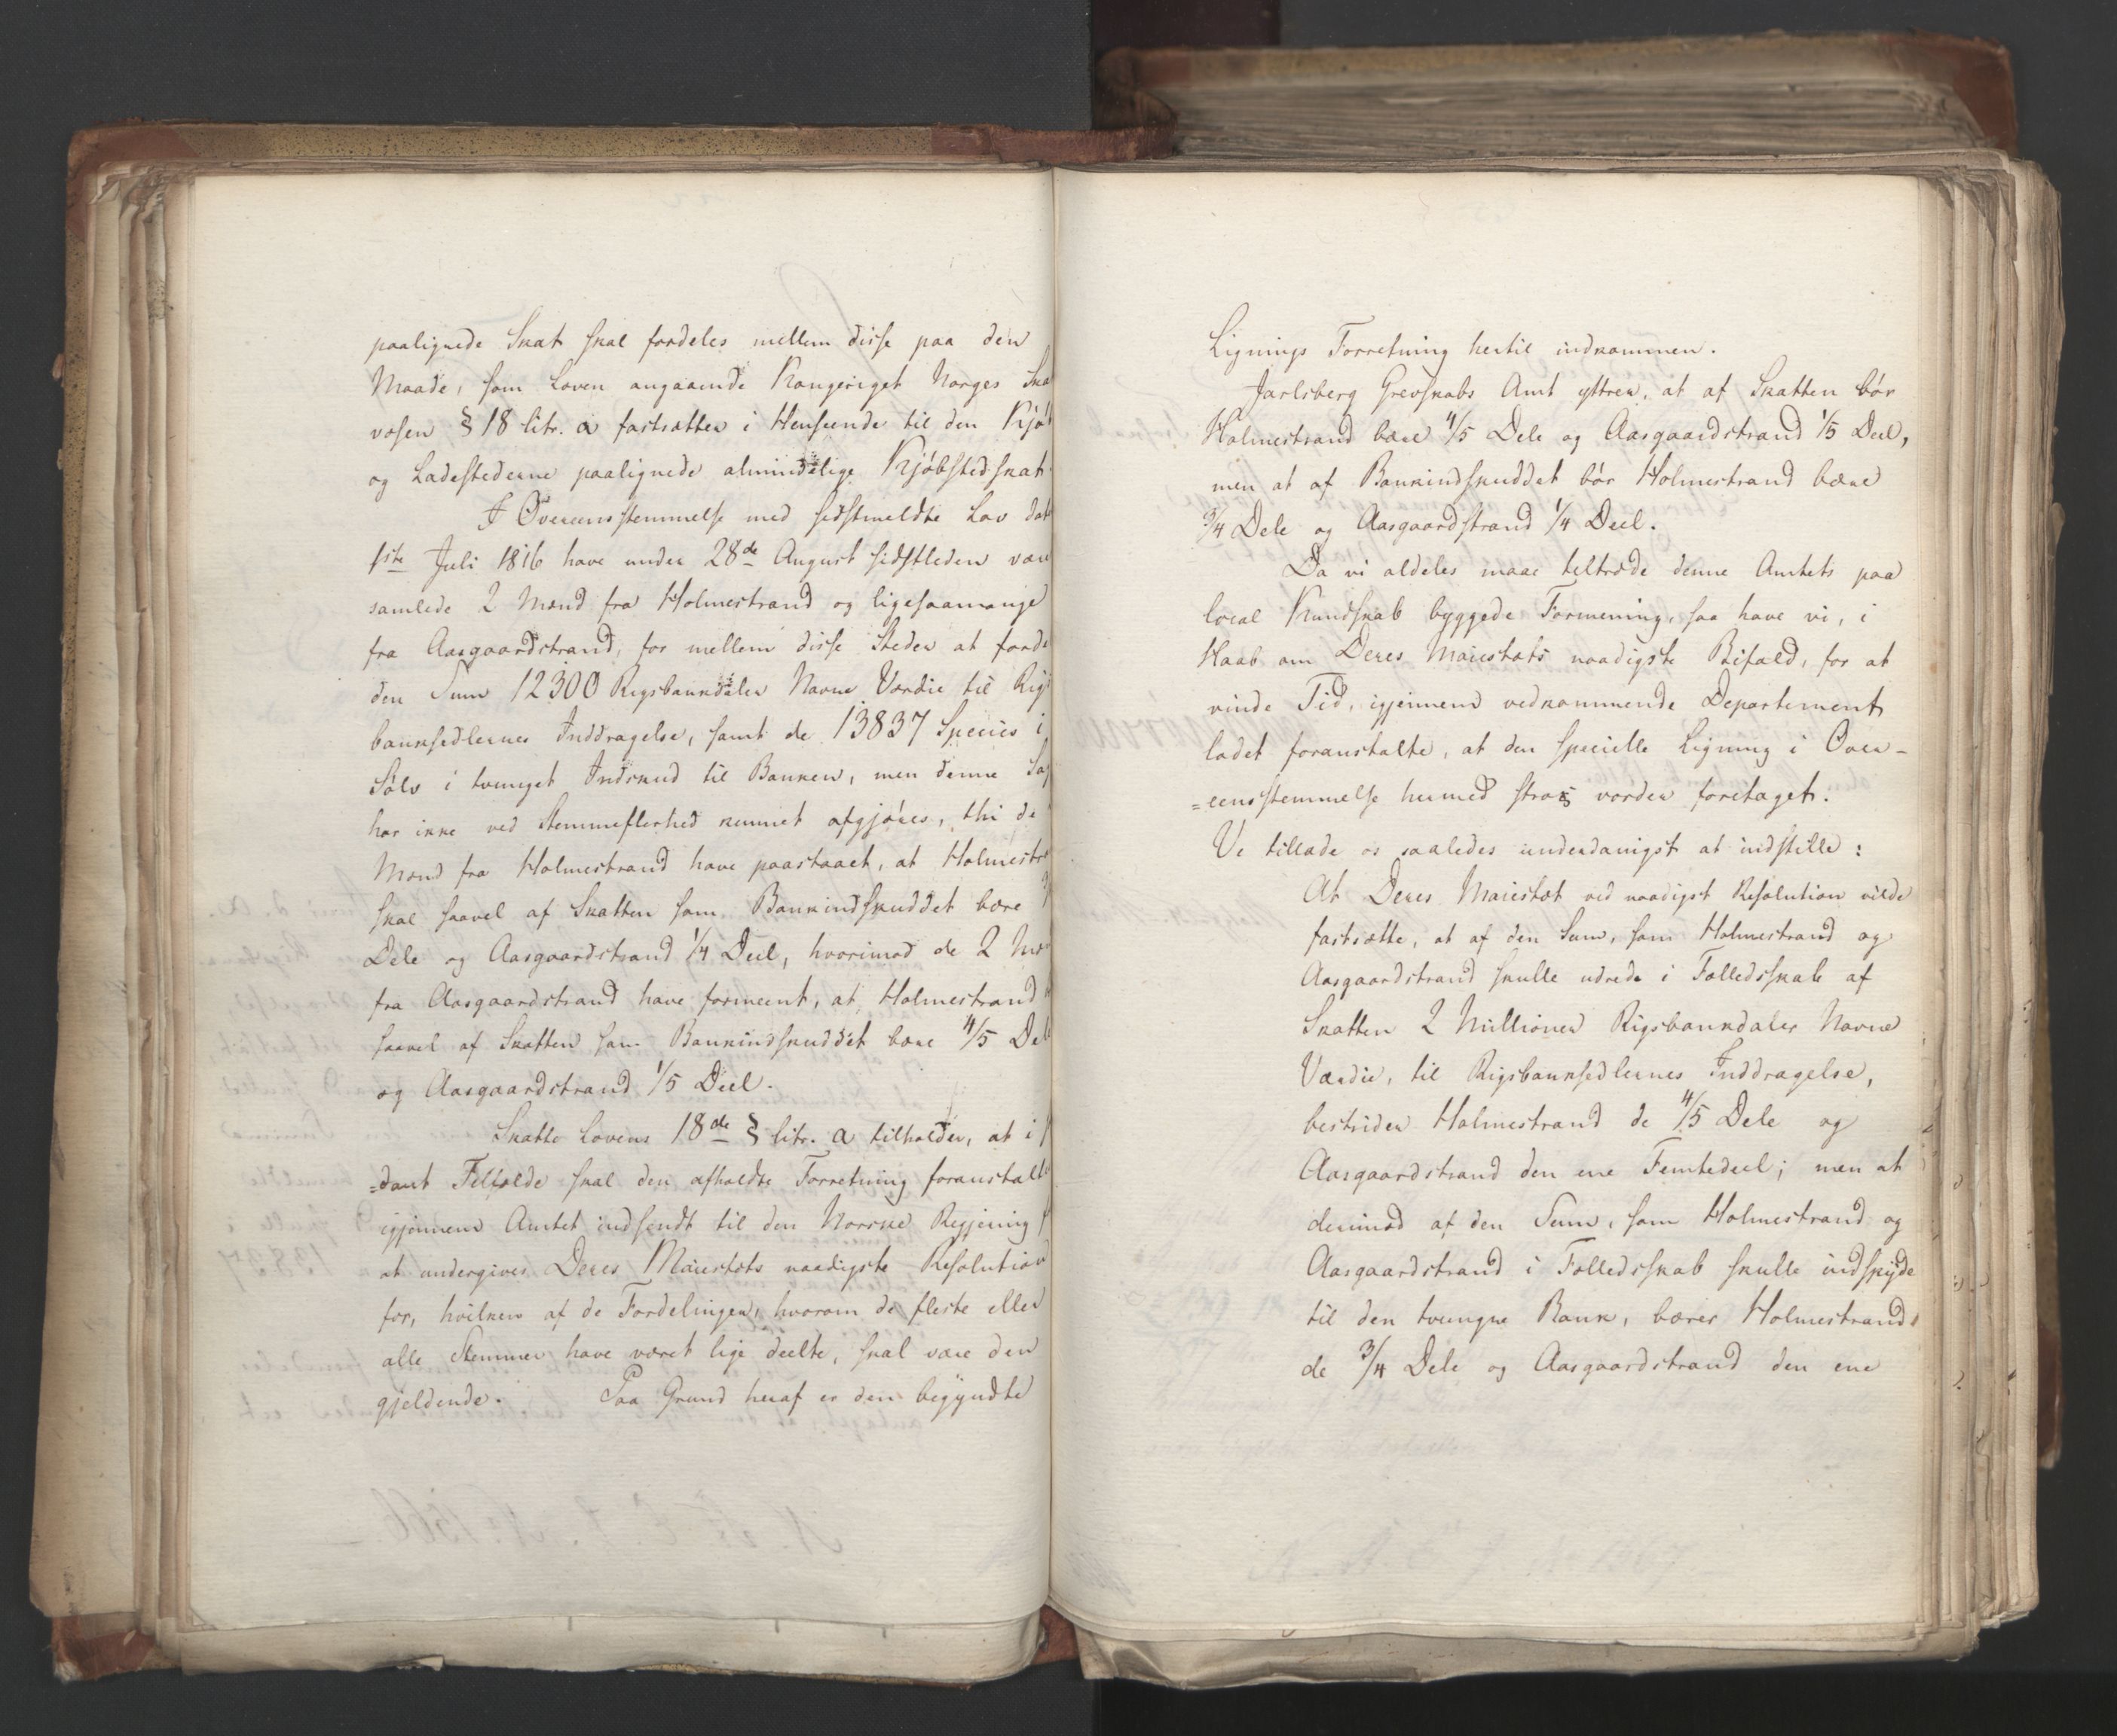 paalignede Skat skal fordeles mellem disse paa den
Maade, som Loven angaaende Kongeriget Norges Ska
væsen § 18 litr. a fastsætter i Henseende til den Kjø
og Ladestederne paalignede almindelige Kjøbstedskat
I Overeensstemmelse med sidstmeldte Lov dat
1ste Juli 1816 have under 28de August sidstleden være
samlede 2 Mænd fra Holmestrand og ligesaamange
fra Aasgaardstrand, for mellem disse Steder at forde
den Sum 12300 Rigsbankdaler Navne Værdie til Rigs
banksedlernes Inddragelse, samt de 13837 Species i
Sølv i tvunget Indskud til Banken, men denne Sag
har ikke ved Stemmeflerhed kunnet afgjøres, thi de
Mænd fra Holmestrand have paastaaet, at Holmestr
skal saavel af Skatten som Bankindskuddet bære 3/
Dele og Aasgaardstrand 1/4 Deel, hvorimod de 2 Mæ
fra Aasgaardstrand have formeent, at Holmestrand
saavel af Skatten som Bankindskuddet bære 4/5 Del
og Aasgaardstrand 1/5 Deel.
Skatte Lovens 18de § litr. a tilholder, at i s
=dant Tilfælde skal den afholdte Forretning foranstalte
igjennem Amtet indsendt til den Norske Regjering f
at undergives Deres Maiestæts naadigste Resolution
for, hvilken af de Fordelinger, hvorom de fleste eller
alle Stemmer have været lige deelte, skal være den
gjeldende. Paa Grund heraf er den begyndte
Lignings Forretning hertil indkommen.
Jarlsberg Grevskabs Amt yttrer, at af Skatten bør
Holmestrand bære 4/5 Dele og Aasgaardstrand 1/5 Deel,
men at af Bankindskuddet bør Holmestrand bære
3/4 Dele og Aasgaardstrand 1/4 Deel.
Da vi aldeles maae tiltræde denne Amtets paa
local Kundskab byggede Formening, saa have vi, i
Haab om Deres Maiestæts naadigste Bifald, for at
vinde Tid, igjennem vedkommende Departement
ladet foranstalte, at den specielle Ligning i Over-
=eensstemmelse hermed strax vorder foretaget.
Vi tillade os saaledes underdanigst at indstille:
At Deres Maiestæt ved naadigst Resolution vilde
fastsætte, at af den Sum, som Holmestrand og
Aasgaardstrand skulle udrede i Fælledsskab af
Skatten 2 Millioner Rigsbankdaler Navne
Værdie, til Rigsbanksedlernes Inddragelse,
bestrider Holmestrand de 4/5 Dele og
Aasgaardstrand den ene Femtedeel; men at
derimod af den Sum, som Holmestrand og
Aasgaardstrand i Fælledsskab skulle indskyde
til den tvungne Bank, bærer Holmestrand
de 3/4 Dele og Aasgaardstrand den ene